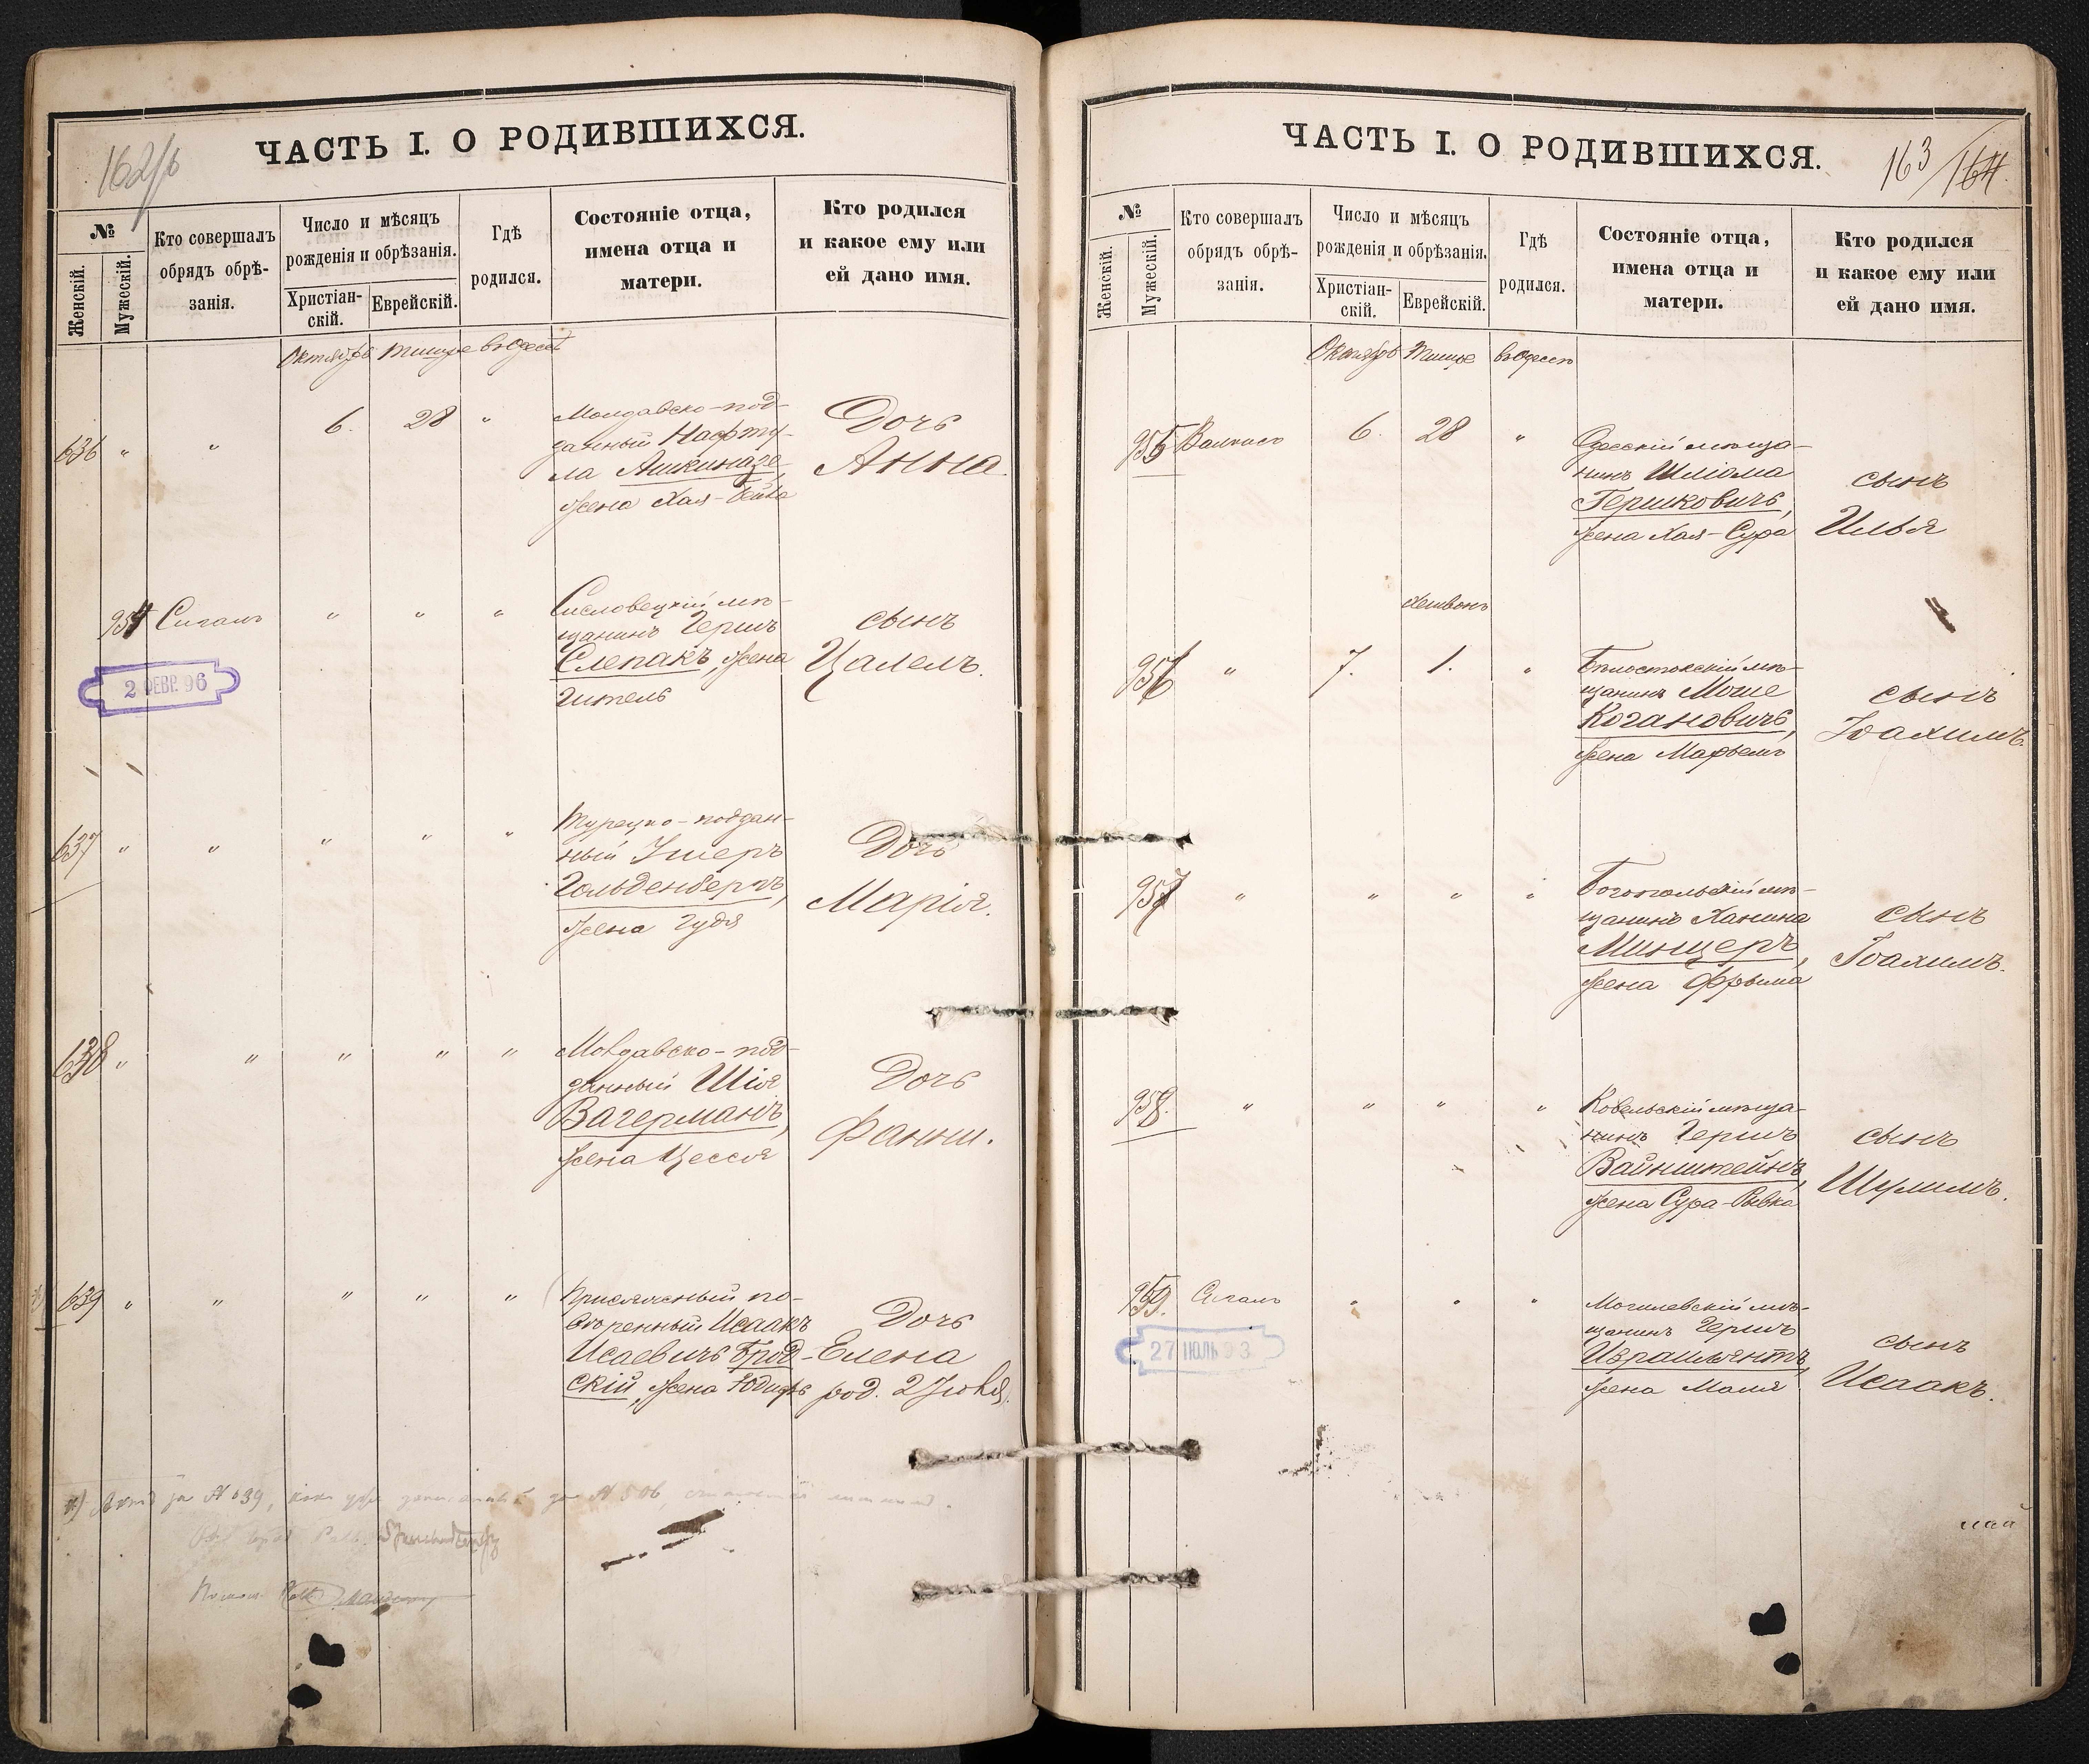 ЧАСТЬ I. О РОДИВШИХСЯ.
162/б
№
Женскій.
Мужескій.
Кто совершалъ
обрядъ обрѣ-
занія.
Число и мѣсяцъ
рожденія и обрѣзанія.
Христіан-
скій.
Еврейскій.
Гдѣ
родился.
Состояніе отца,
имена отца и
матери.
Кто родился
и какое ему или
ей дано имя.
Октябрь Тишре въ Одессѣ
636 " " 6. 28 "
Молдавско-под-
данный Нафту-
ла Ашкиназе,
жена Хая-Бейла
Дочь
Анна
954 Сигалъ " " "
мѣ-
щанинъ Гершъ
Слепакъ, жена
Гитель
сынъ
Цалелъ.
2 ФЕВР. 96
637 " " " " "
Турецко-поддан-
ный Ушеръ
Гольденбергъ,
жена Гудя
Дочь
Марія.
638 " " " " "
Молдавско-под-
данный Шія
Вагерманъ,
жена Цессія
Дочь
Фанни.
639 " " " " "
Присяжный по-
вѣренный Исаакъ
Исаевичъ Брод-
скій, жена Юдифь
Дочь
Елена
род. 2 Іюля.
за № 639, за № 506,
ЧАСТЬ I. О РОДИВШИХСЯ.
163/164
№
Женскій.
Мужескій.
Кто совершалъ
обрядъ обрѣ-
занія.
Число и мѣсяцъ
рожденія и обрѣзанія.
Христіан-
скій.
Еврейскій.
Гдѣ
родился.
Состояніе отца,
имена отца и
матери.
Кто родился
и какое ему или
ей дано имя.
Октябрь Тишре въ Одессѣ
955 6. 28 "
Одесскій мѣща-
нинъ Шліома
Гершковичъ,
жена Хая-Сура
сынъ
Илья
Хешвонъ
956 " 7. 1. "
Бѣлостокскій мѣ-
щанинъ Моше
Когановичъ,
жена Марьемъ
сынъ
Іоахимъ.
957 " " " "
Богопольскій мѣ-
щанинъ Ханина
Минцеръ,
жена Фрыма
сынъ
Іоахимъ.
958. " " " "
Ковельскій мѣща-
нинъ Гершъ
Вайнштейнъ,
жена Сура-Ривка
сынъ
Шулимъ.
959. Сигалъ " " "
Могилевскій мѣ-
щанинъ Гершъ
Израильянтъ,
жена Маля
сынъ
Исаакъ.
27 ІЮЛЬ 93